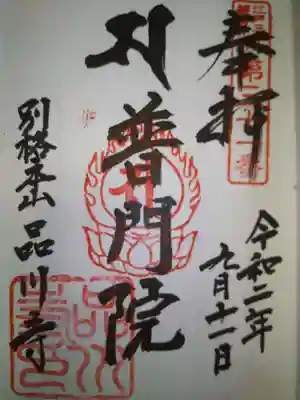 奉拝
普門院
別格本山 品川寺
令和二年
九月十一日